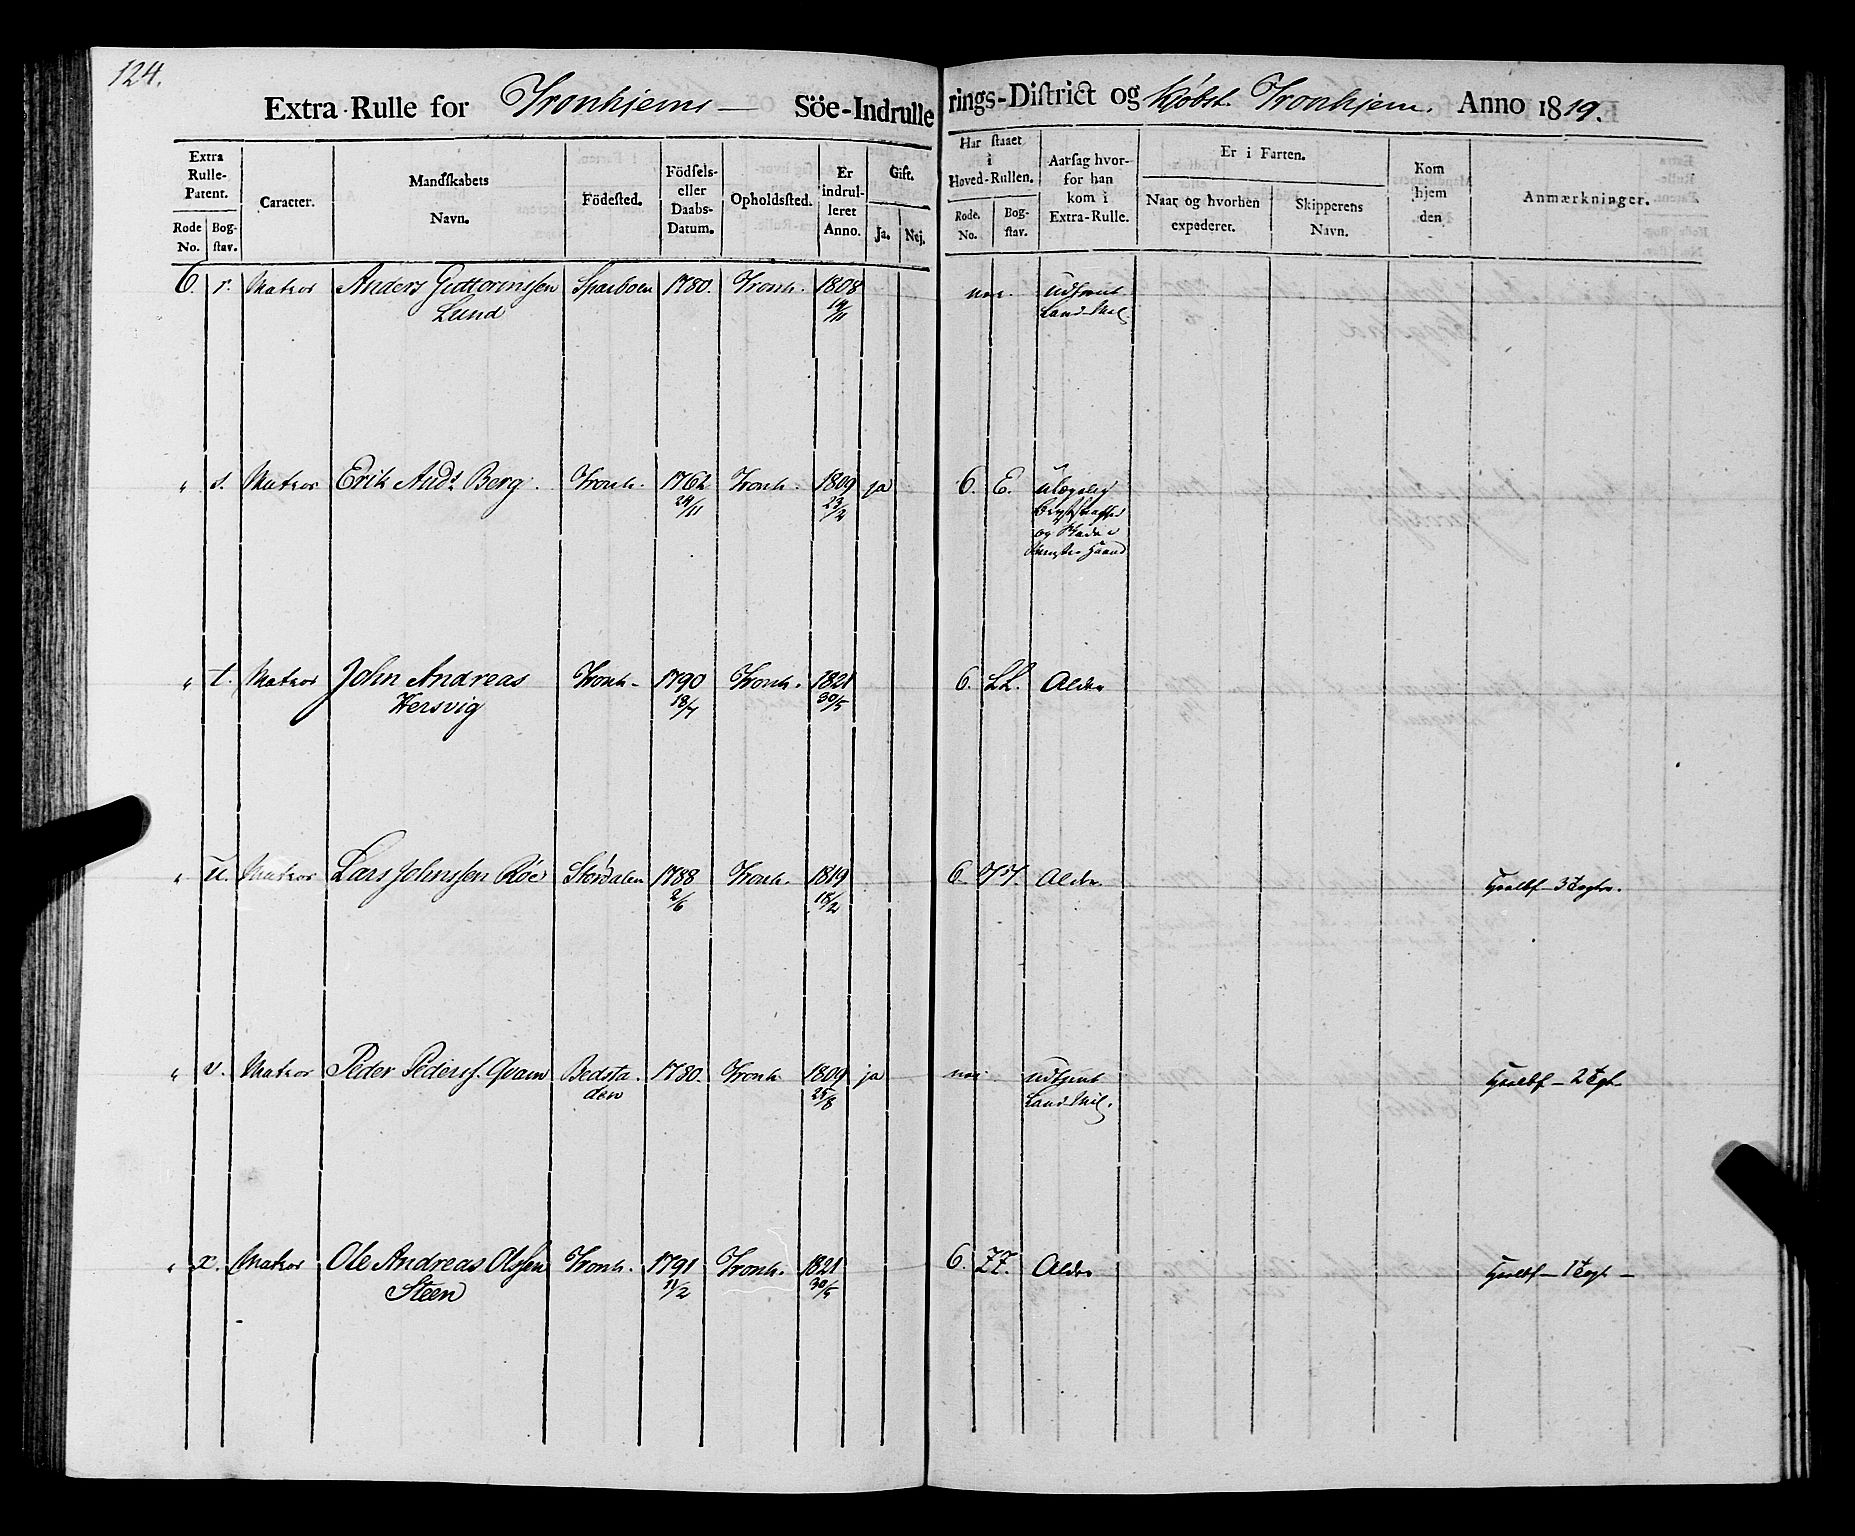 124.
Extra Rulle for Tronhjems — Söe-Indrullerings-District og Kjöbst. Tronhjem. Anno 1819.
Extra Rulle-Patent. Rode No. Bogstav. Caracter. Mandskabets Navn. Födested. Födsels- eller Daabs-Datum. Opholdssted. Er indrulleret Anno. Gift. Ja. Nej. Har staaet i Hoved-Rullen. Rode. No. Bogstav. Aarsag hvorfor han kom i Extra-Rulle. Er i Farten. Naar og hvorhen expederet. Skipperens Navn. Kom hjem den Anmærkninger.
6. r. Matros Anders Guttormssen Sparboen 1780. Tronh. 1808 nei. udtjent
Lund 19/11 Land Mil.
" s. Matros Erik Ands Berg. Tronh. 1762 Tronh. 1809 ja 6. E.
24/11 23/2
og Skade i
Haand
" t. Matros John Andreas Tronh. 1790 Tronh. 1821 6. LL. Alder
Hersvig 18/7 30/5
" u. Matros Lars Johnssen Röe Stördalen 1788 Tronh. 1819 6. Alder.
2/6 18/2
" v. Matros Peder Peders. Qvam Bedsta- 1780. Tronh. 1809 ja nei. udtjent
den 25/8 Land Mil.
" x. Matros Ole Andreas Olssen Tronh. 1791 Tronh. 1821 6. ZZ. Alder
Steen 11/2 30/5